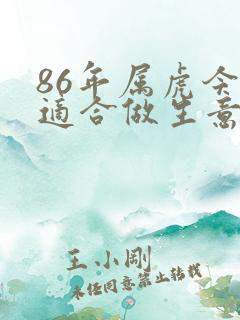 86年属虎今
適合做生意
王小刚
未经同意禁止转载